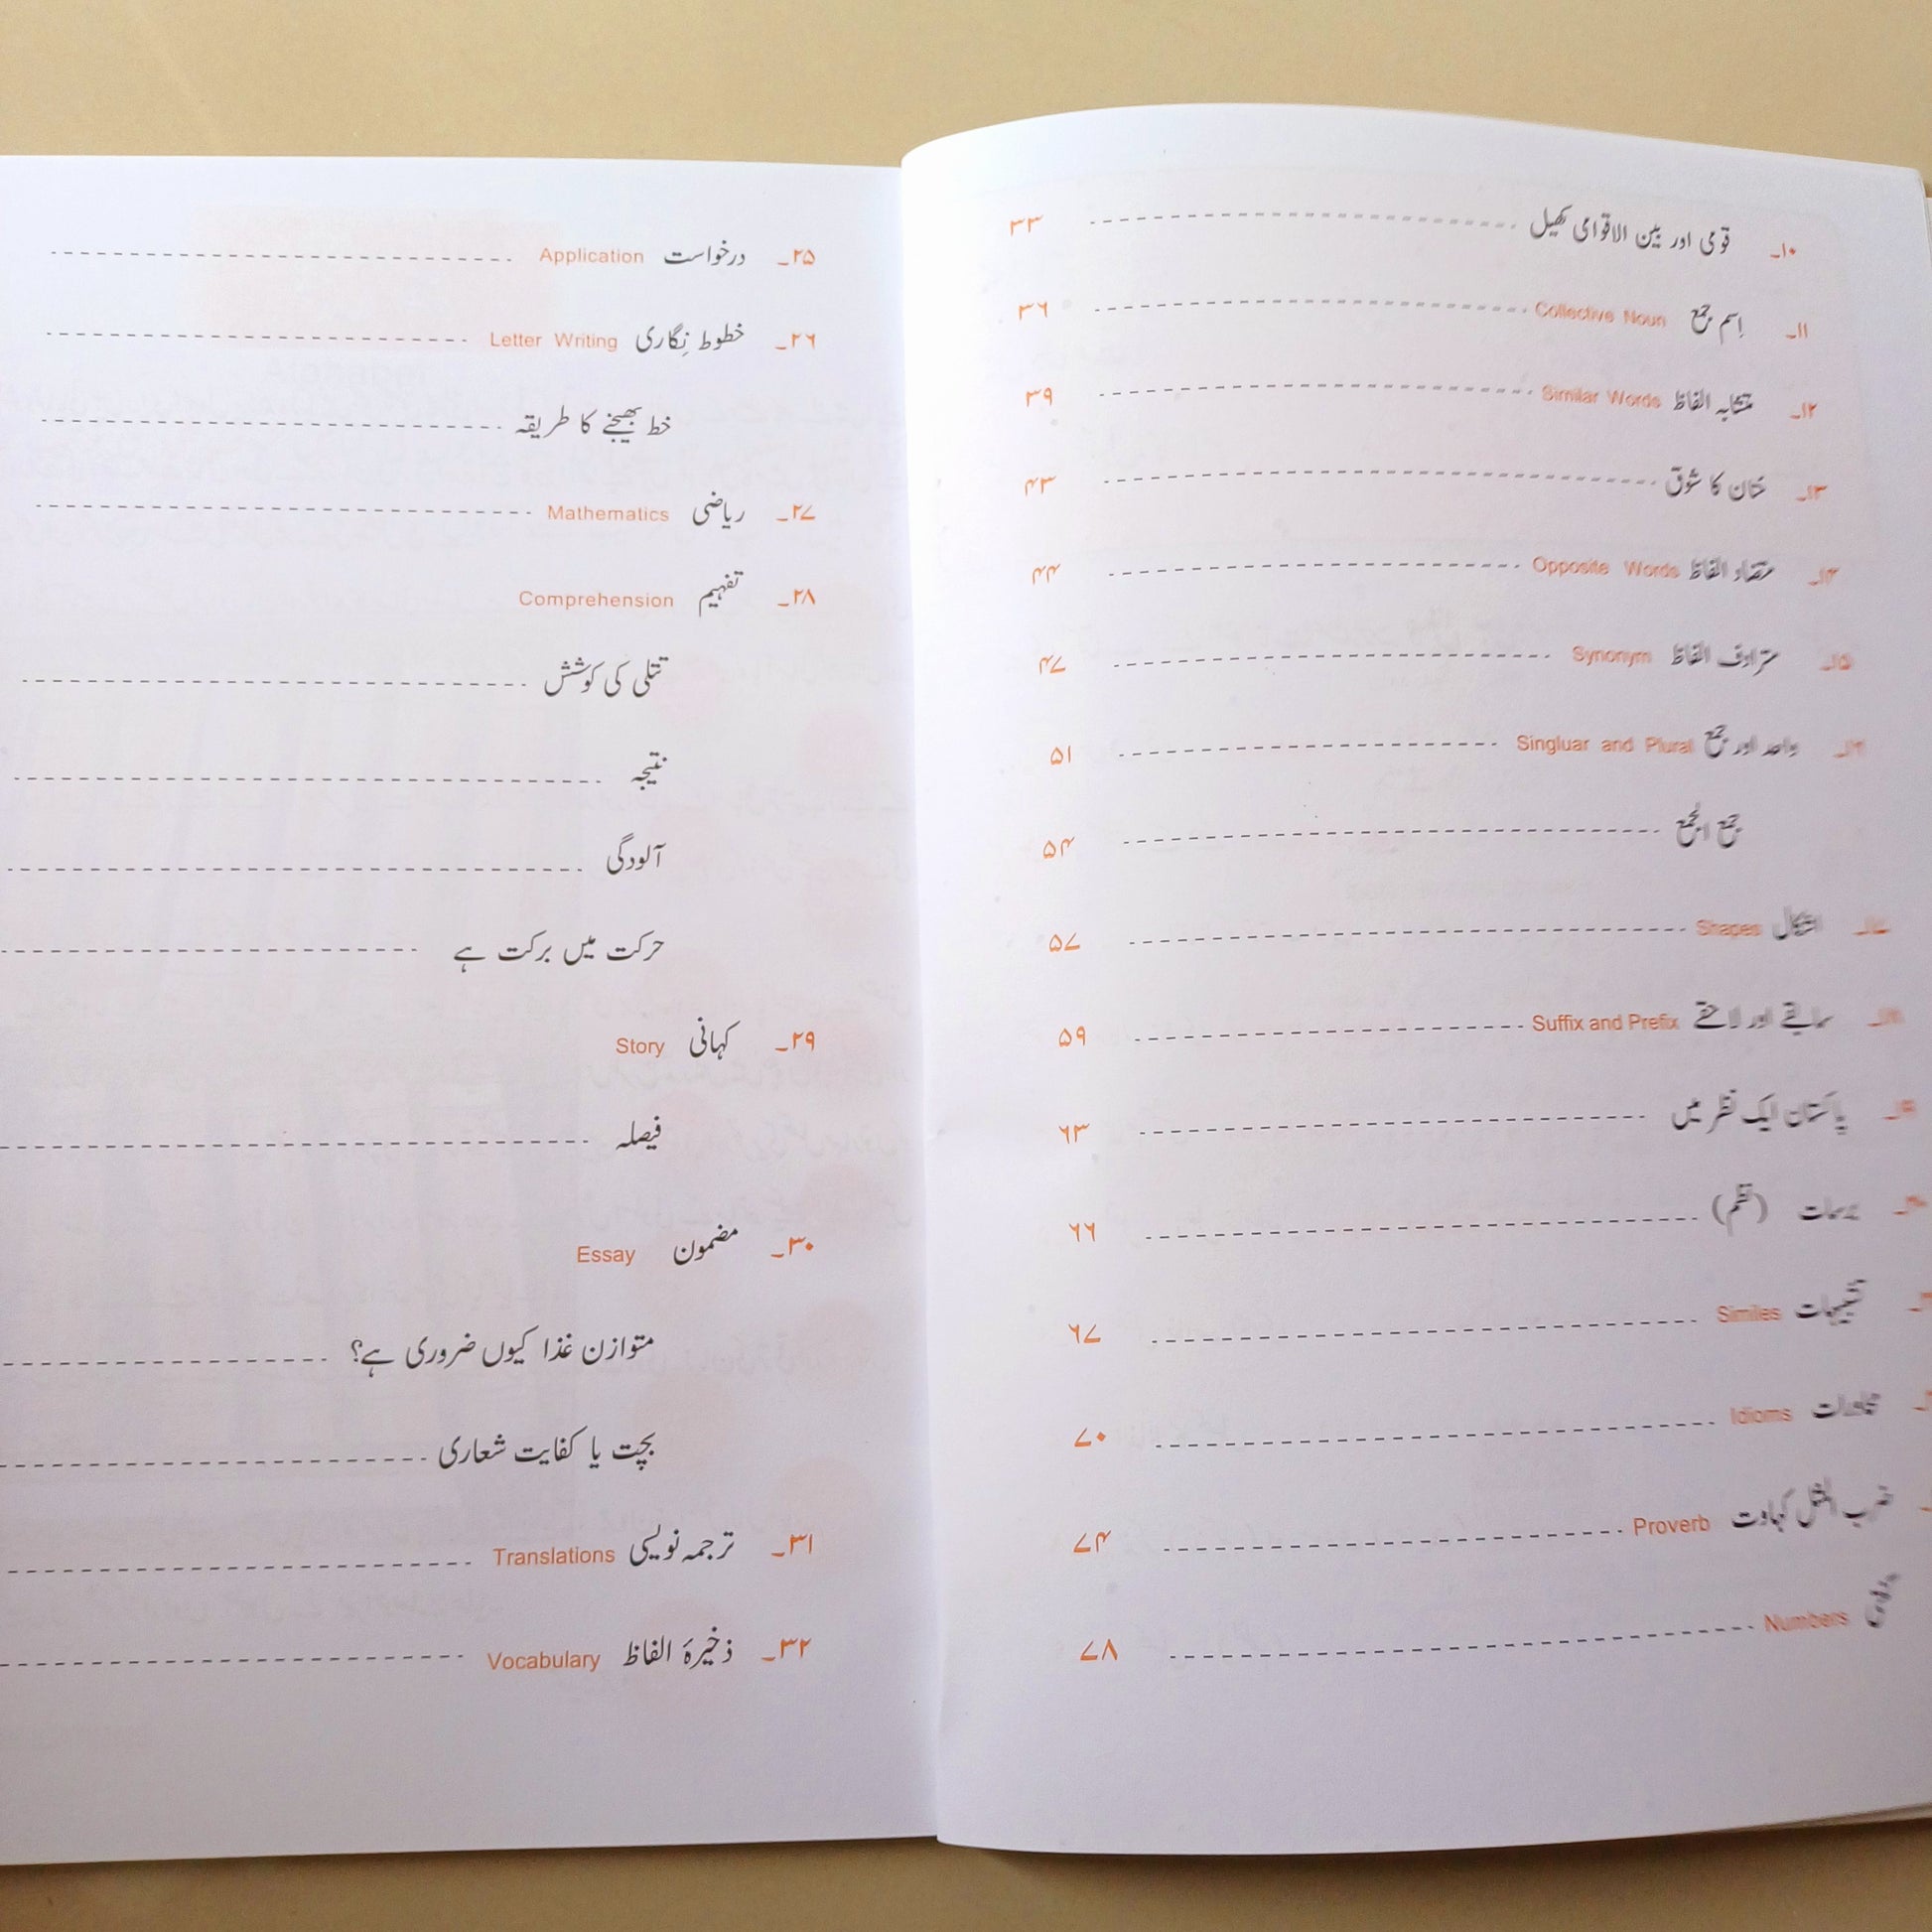 ۱۰۔ قومی اور بین الاقوامی کھیل ۳۳
۱۱۔ اِسم جمع Collective Noun ۳۶
۱۲۔ متشابہ الفاظ Similar Words ۳۹
۱۳۔ خان کا شوق ۴۳
۱۴۔ متضاد الفاظ Opposite Words ۴۴
۱۵۔ مترادف الفاظ Synonym ۴۷
۱۶۔ واحد اور جمع Singluar and Plural ۵۱
جمع الجمع ۵۴
۱۷۔ اشکال Shapes ۵۷
۱۸۔ سابقے اور لاحقے Suffix and Prefix ۵۹
۱۹۔ پاکستان ایک نظر میں ۶۳
برسات (نظم) ۶۶
تشبیہات Similes ۶۷
محاورات Idioms ۷۰
ضرب المثل کہاوت Proverb ۷۴
Numbers ۷۸
۲۵۔ درخواست Application
۲۶۔ خطوط نِگاری Letter Writing
خط بھیجنے کا طریقہ
۲۷۔ ریاضی Mathematics
۲۸۔ تفہیم Comprehension
تتلی کی کوشش
نتیجہ
آلودگی
حرکت میں برکت ہے
۲۹۔ کہانی Story
فیصلہ
۳۰۔ مضمون Essay
متوازن غذا کیوں ضروری ہے؟
بچت یا کفایت شعاری
۳۱۔ ترجمہ نویسی Translations
۳۲۔ ذخیرۂ الفاظ Vocabulary